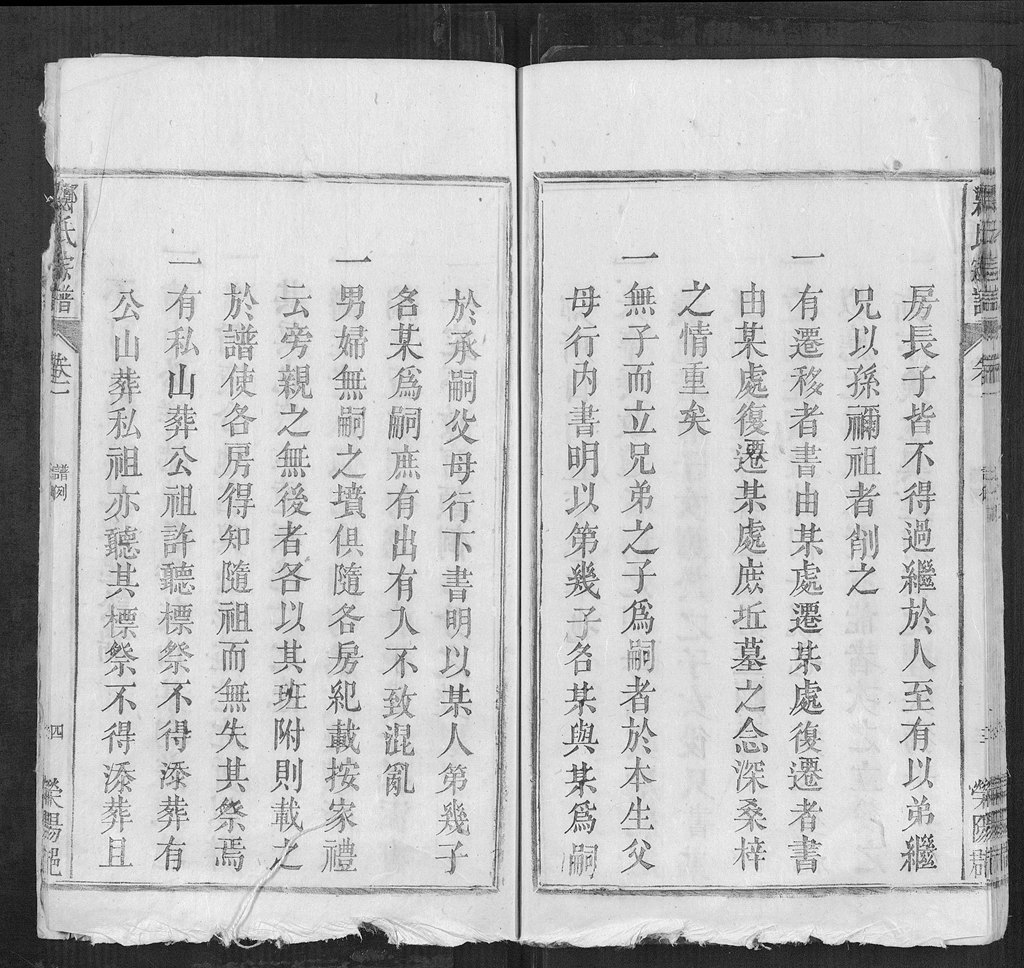 鄭氏宗譜
卷一
房長子皆不得過繼於人至有以弟繼
兄以孫禰祖者削之
一有遷移者書由某處遷某處復遷者書
由某處復遷某處庶坵墓之念深桑梓
之情重矣
一無子而立兄弟之子爲嗣者於本生父
母行內書明以第幾子名某與某爲嗣
於承嗣父母行下書明以某人第幾子
名某爲嗣庶有出有入不致混亂
一男婦無嗣之墳俱隨各房紀載按家禮
云旁親之無後者各以其班附則載之
於譜使各房得知隨祖而無失其祭焉
一有私山葬公祖許聽標祭不得添葬有
公山葬私祖亦聽其標祭不得添葬且
鄭氏宗譜
卷一
譜例
四